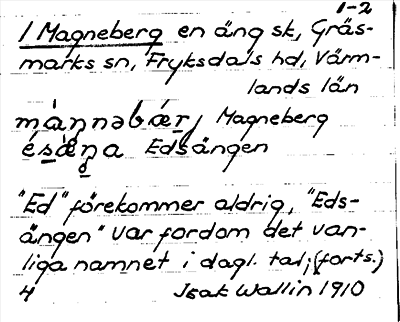 1-2
1 Magneberg en äng sk, Gräs-
marks sn, Fryksdals hd, Värm-
lands län
mánnəbǽr, Magneberg
Edsängen
"Ed" förekommer aldrig, "Eds-
ängen" var fordom det van-
liga namnet i dagl. tal; (forts.)
4 Isak Wallin 1910